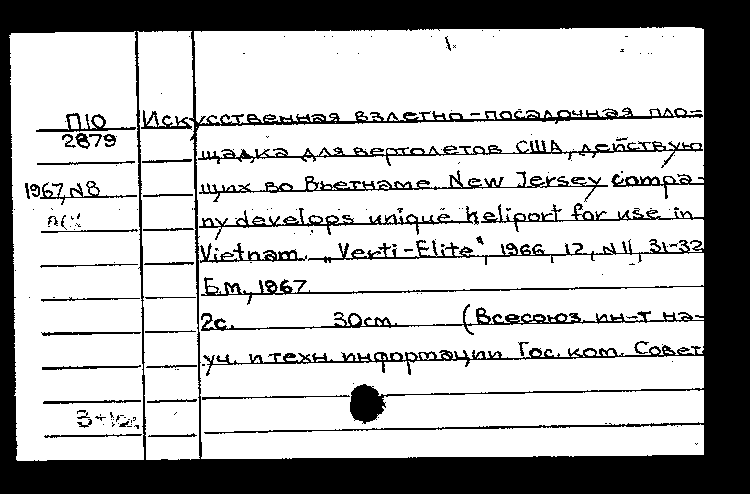 П10 Искусственная взлетно-посадочная пло=
2879
щадка для вертолетов США, действую
1967, N8 щих во Вьетнаме. New Jersey compa-
ny develops unique heliport for use in
Vietnam. „Verti-Elite", 1966, 12, N11, 31-32
Б.м., 1967.
2с. 30см. (Всесоюз. ин-т на-
уч. и техн. информации Гос. ком. Совет